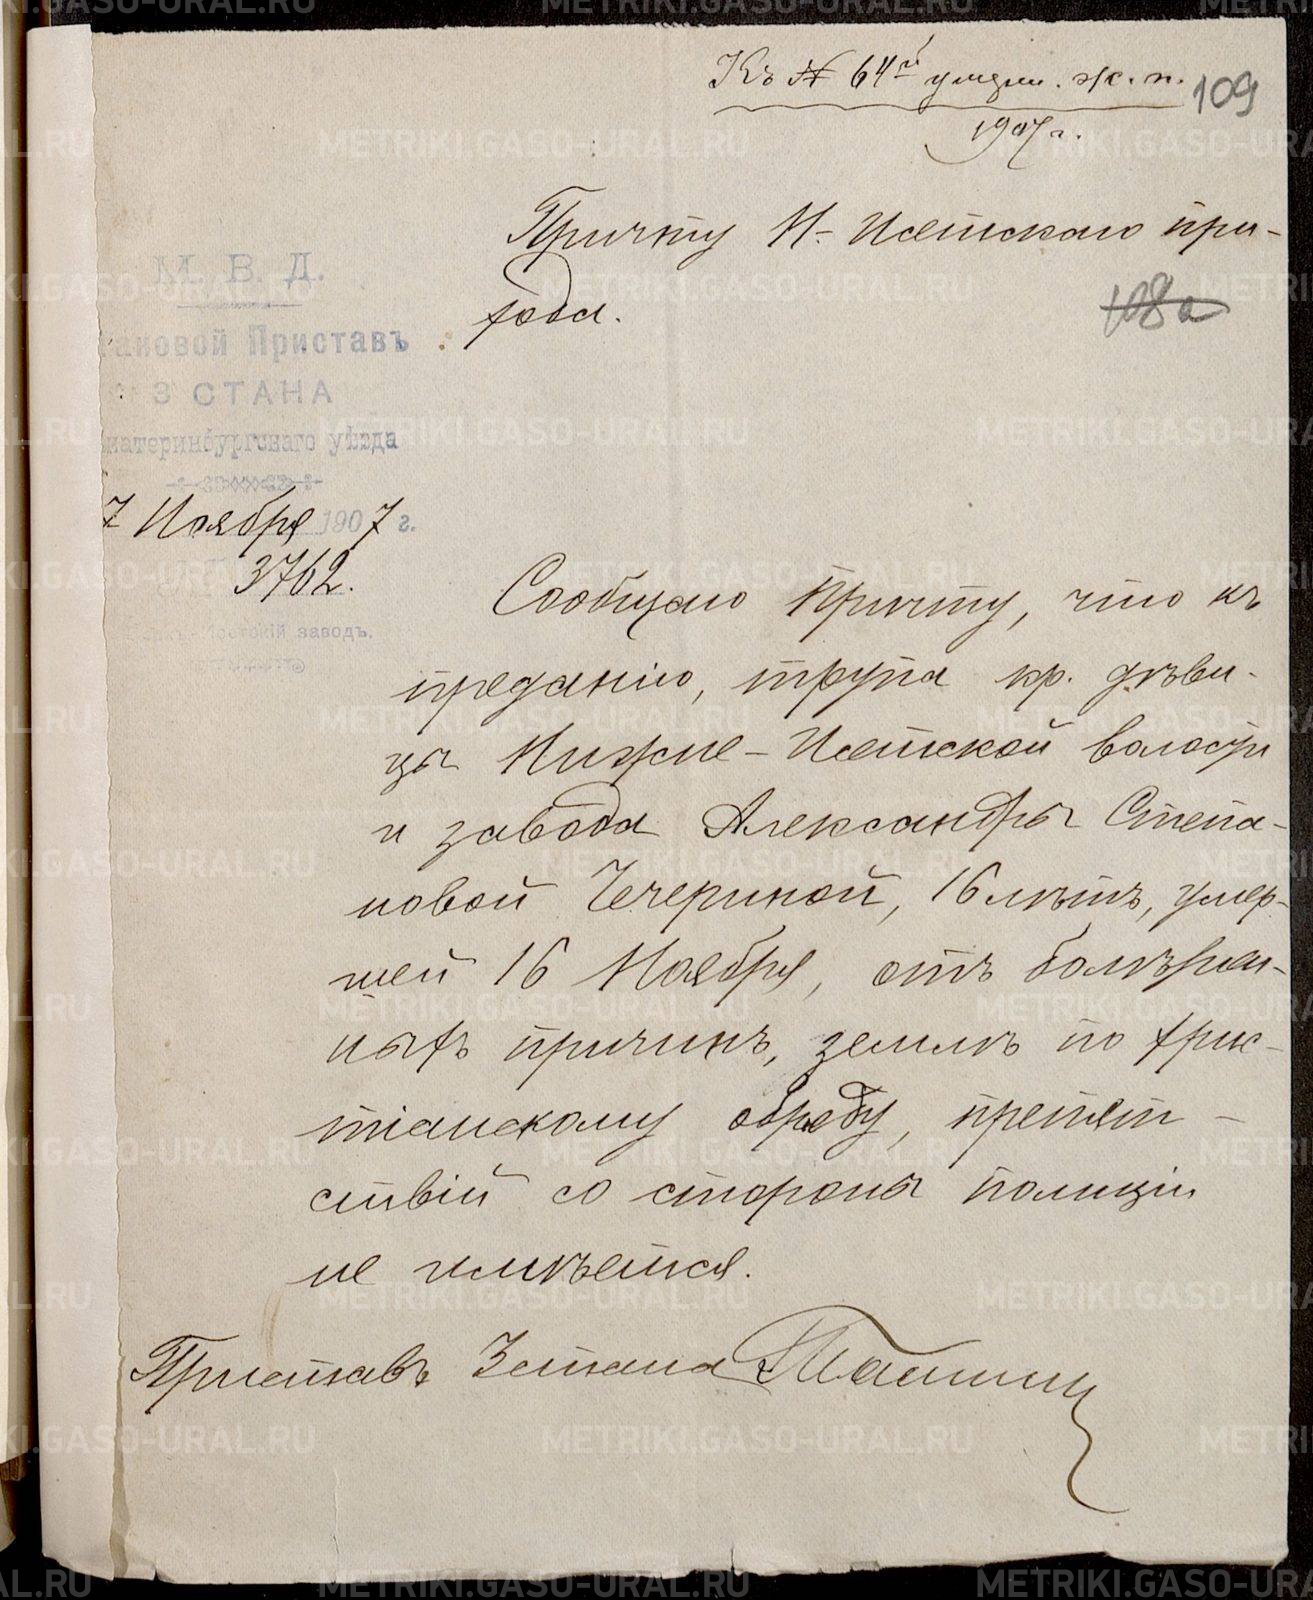 Къ № 64й умерш. ж. п. 109
1907 г.
Причту Н-Исетскаго при-
хода.
108а
М. В. Д.
ановой Приставъ
3 СТАНА
катеринбургскаго уѣзда
7 Ноября 1907 г.
3762.
заводъ.
Сообщаю Причту, что къ
преданію, трупа кр. дѣви-
цы Нижне-Исетской волости
и завода Александры Степа-
новой Чечериной, 16 лѣтъ, умер-
шей 16 Ноября, отъ болѣзнен-
ныхъ причинъ, землѣ по хрис-
тіанскому обряду, препят-
ствій со стороны полиціи
не имѣется.
Приставъ 3 стана
METRIKI.GASO-URAL.RU